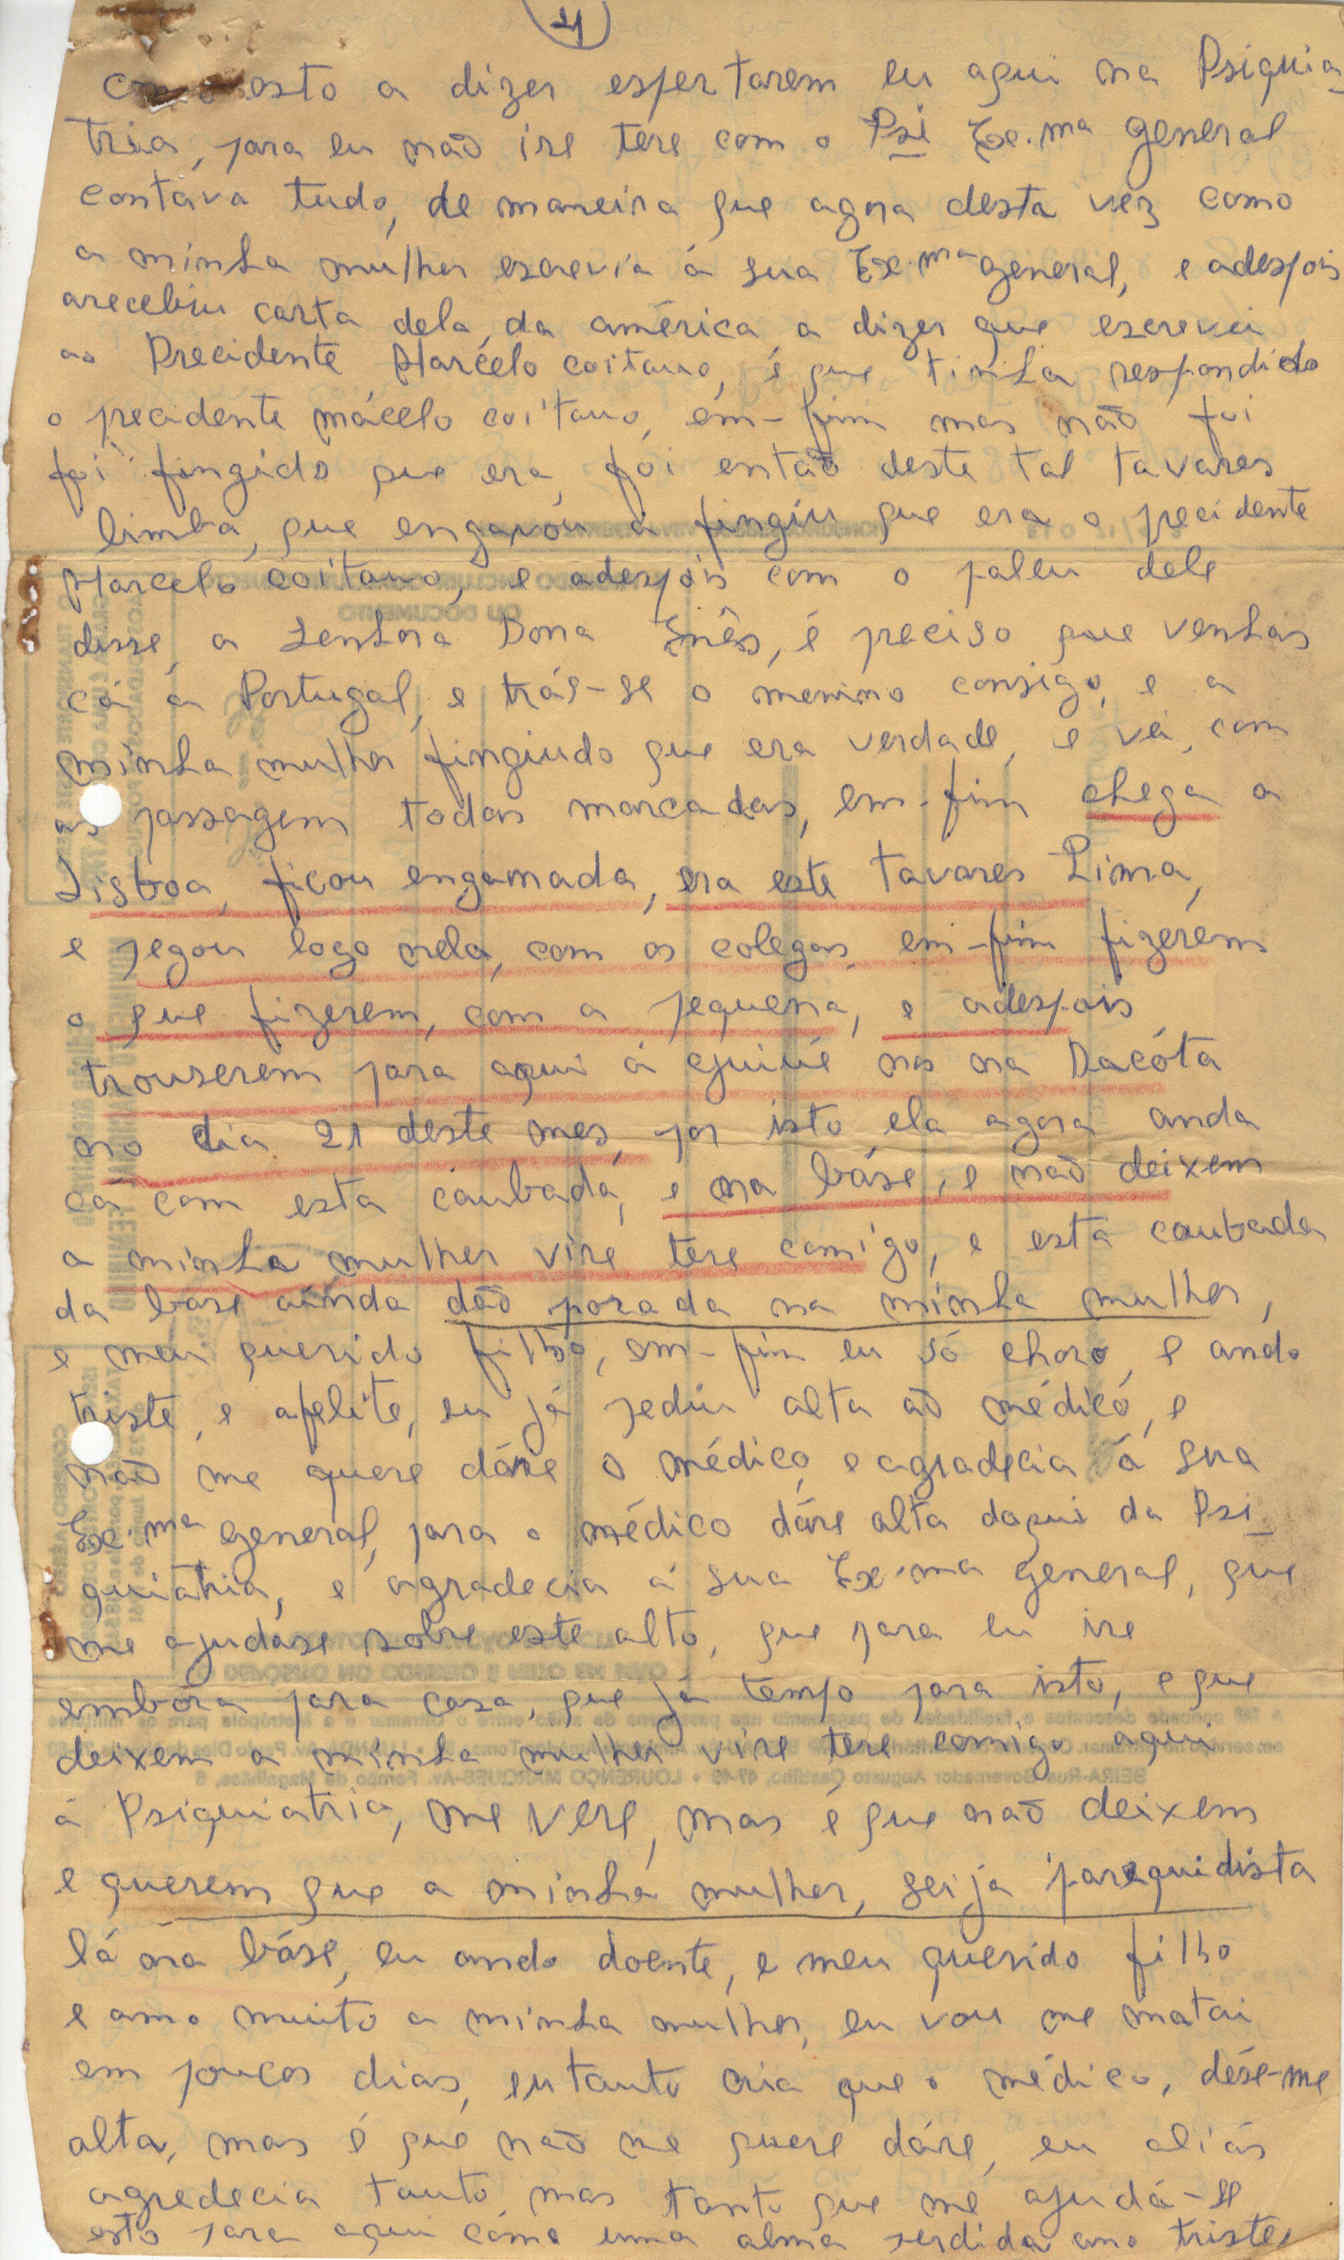 4
esto a dizer espertarem eu aqui na Psiquia
tria, para eu não ire tere com o Psi Ex.ma general
contáva tudo, de maneira que agora desta vez como
a minha mulher escrevia á sua Ex.ma general, e adespois
arecebiu carta dela, da américa a dizer que escrevei
ao Precidente Marcélo coitano, é que tinha respondido
o precidente mácelo coitano, em-fim mas não foi
foi fingido que era, foi então deste tal tavares
limba, que enganóu a fingiu que era o precidente
Marcelo coitano, e adespois com o paleu dele
disse, a Senhora Dona Enês, é preciso que venhas
cá a Portugal, e tráe-se o menino consigo, e a
minha mulher fingiudo que era verdade, e vei, com
as passagem todas marcadas, em-fim chega a
Lisboa, ficou enganada, era este tavares Lima,
e pegou logo nela, com os colegas, em-fim fizerem
o que fizerem, com a pequena, e adespois
trouserem para aqui á guiué nos na Dacóta
no dia 21 deste mes, por isto ela agora anda
cá com esta caubada, e na báse, e não deixem
a minha mulher vire tere comigo, e esta caubada
da base aínda dão porada na minha mulher,
e meu querido filho, em-fim eu só choro, e ando
triste, e afelite, eu já pediu alta aõ médico, e
não me quere dáre o médico, e agradecia á sua
Ex.ma general, para o médico dáre alta daqui da Psi
quiatria, e agradecia á sua Ex.ma general, que
me ajudase sobre este alto, que para eu ire
embóra para casa, que já tempo para isto, e que
deixem a minha mulher vire tere comigo aqui
á Psiquiatria, me vere, mas é que não deixem
e querem que a minha mulher, seija paraquidista
lá na báse, eu ando doente, e meu querido filho
e amo muito a minha mulher, eu vou me matai
em poucos dias, entanto cria que o médico, dése-me
alta, mas é que não me quere dáre, eu aliás
agredecia tanto, mas tanto que me ajudá-se
esto para aqui cómo uma alma perdida ano triste,